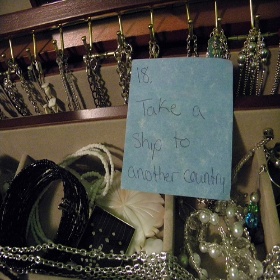 18.
Take a
ship to
another country